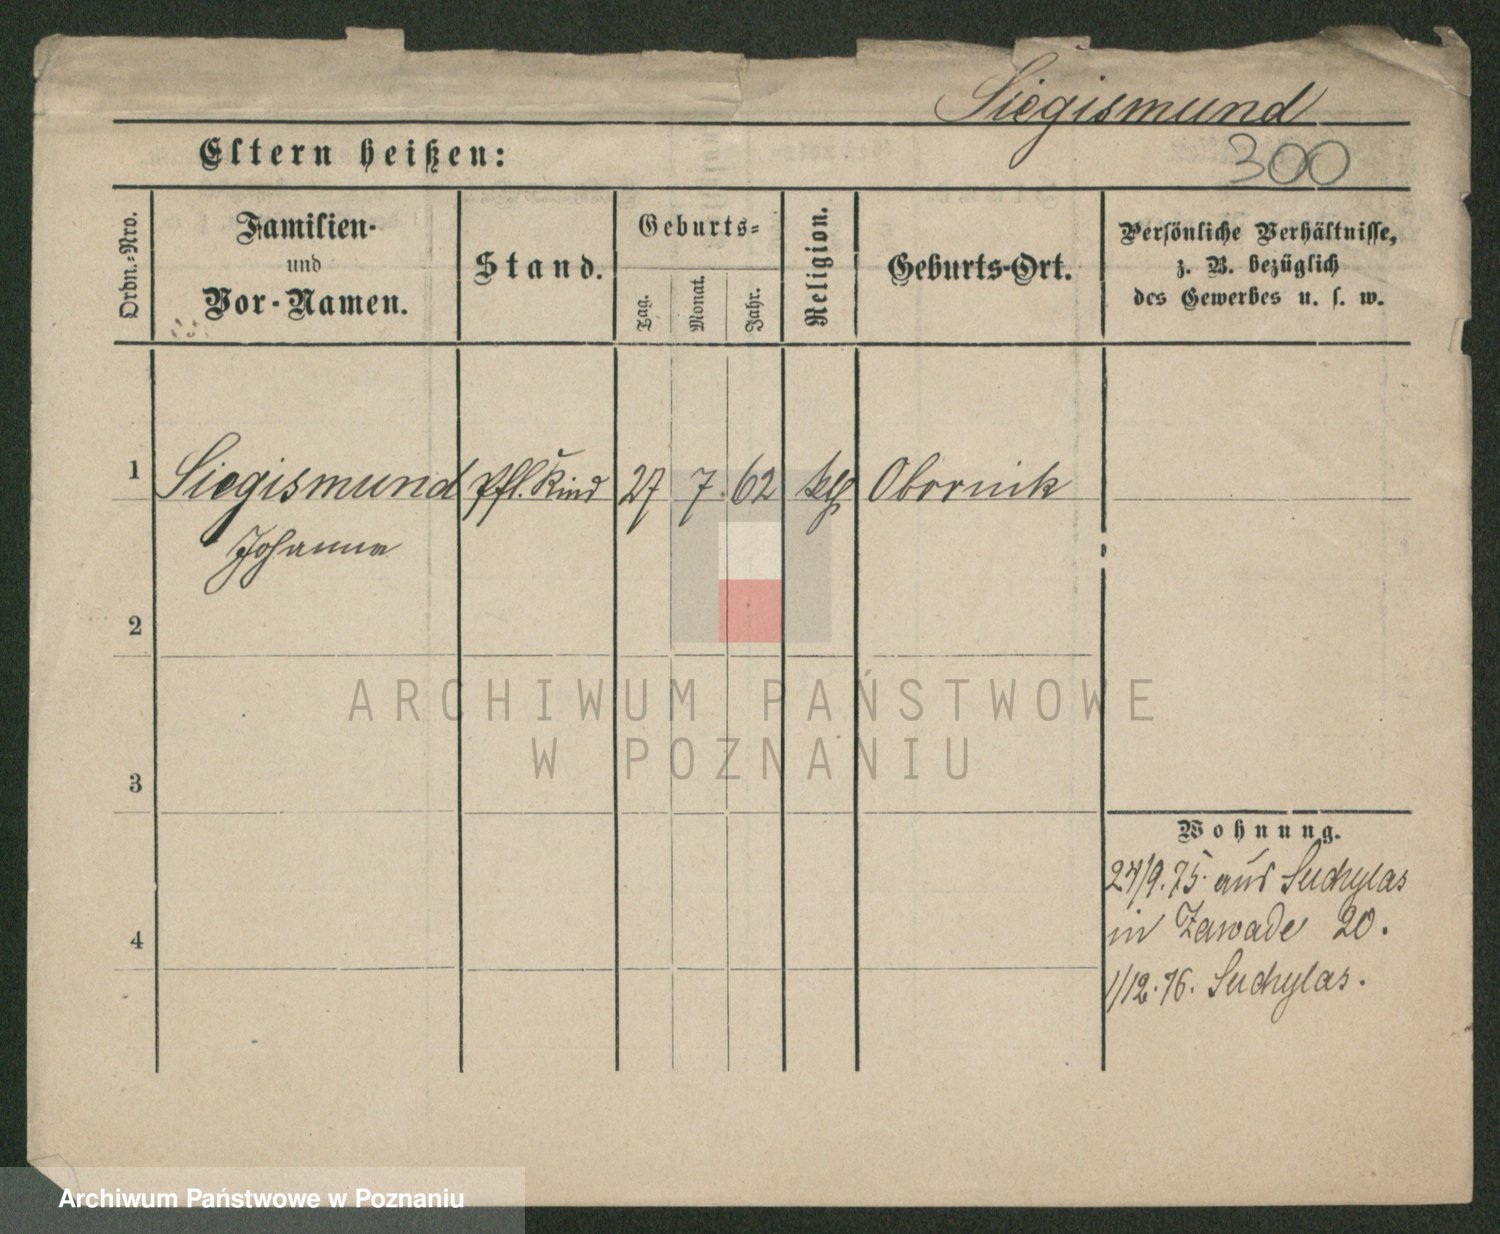 Siegismund
300
Eltern heißen:
Ordn.-Nro.
Familien-
und
Vor-Namen.
Stand.
Geburts-
Tag.
Monat.
Jahr.
Religion.
Geburts-Ort.
Persönliche Verhältnisse,
z. B. bezüglich
des Gewerbes u. s. w.
1 Siegismund Pfl. Kind 27 7. 62 Obornik
Johanna
2
3
4
Wohnung.
24/9. 75. aus Suchylas
in Zawade 20.
1/12. 76. Suchylas.
ARCHIWUM PAŃSTWOWE
W POZNANIU
Archiwum Państwowe w Poznaniu